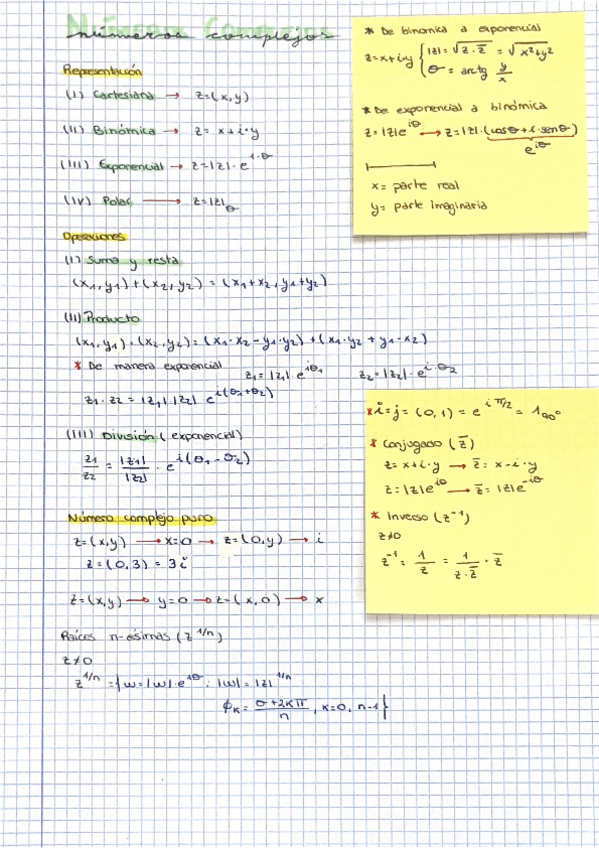 Números Complejos
números complejos
Representación
(I) Cartesiana → z=(x,y)
(II) Binómica → z= x+i·y
(III) Exponencial → z=|z|·e^{i·θ}
(IV) Polar → z=|z|_θ
Operaciones
(I) Suma y resta
(x₁,y₁)+(x₂,y₂) = (x₁+x₂,y₁+y₂)
(II) Producto
(x₁,y₁)·(x₂,y₂)=(x₁·x₂-y₁·y₂)+(x₁·y₂+y₁·x₂)
* De manera exponencial z₁=|z₁|·e^{iθ₁} z₂=|z₂|·e^{i·θ₂}
z₁·z₂=|z₁|·|z₂| e^{i(θ₁+θ₂)}
(III) División (exponencial)
z₁/z₂ = |z₁|/|z₂| · e^{i(θ₁-θ₂)}
Número complejo puro
z=(x,y) → x=0 → z=(0,y) → i
z=(0,3) = 3i
z=(x,y) → y=0 → z=(x,0) → x
Raíces n-ésimas (z^{1/n})
z≠0
z^{1/n}={w=|w|·e^{iθ} : |w|=|z|^{1/n}
ϕ_K = θ+2Kπ/n , K=0, n-1}
* De binomica a exponencial
z=x+iy { |z|=√z·z̄ = √x²+y²
θ= arctg y/x
* De exponencial a binómica
z=|z|e^{iθ} → z=|z|·(cosθ+i·senθ)
e^{iθ}
x= parte real
y= parte imaginaria
* i=j=(0,1)=e^{iπ/2}=1_{90°}
* Conjugado (z̄)
z=x+i·y → z̄=x-i·y
z=|z|e^{iθ} → z̄=|z|e^{-iθ}
* Inverso (z⁻¹)
z≠0
z⁻¹= 1/z = 1/z·z̄ · z̄